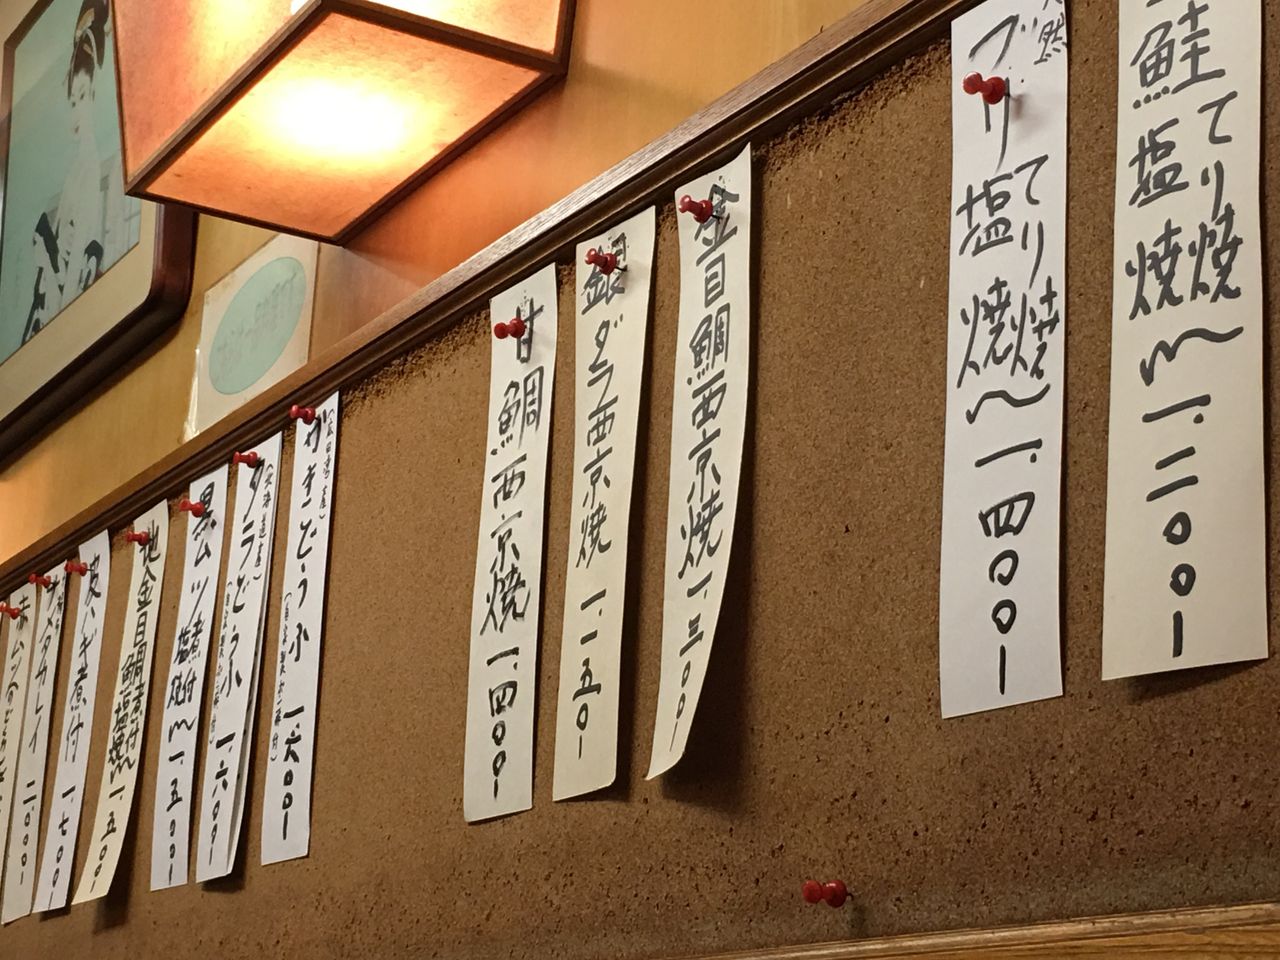 鮭塩焼
てり焼〜一.二〇〇ー
天然
ブリ塩焼
てり焼〜一.四〇〇ー
金目鯛西京焼一.三〇〇ー
銀ダラ西京焼一.一五〇ー
甘鯛西京焼一.四〇〇ー
かきどうふ小一.六〇〇ー
タラどうふ小一.六〇〇ー
黒ムツ煮付
塩焼〜一.五〇〇ー
地金目鯛煮付
塩焼〜一.五〇〇ー
皮ハギ煮付一.七〇〇
ナメタカレイ二.〇〇〇
赤ムツ